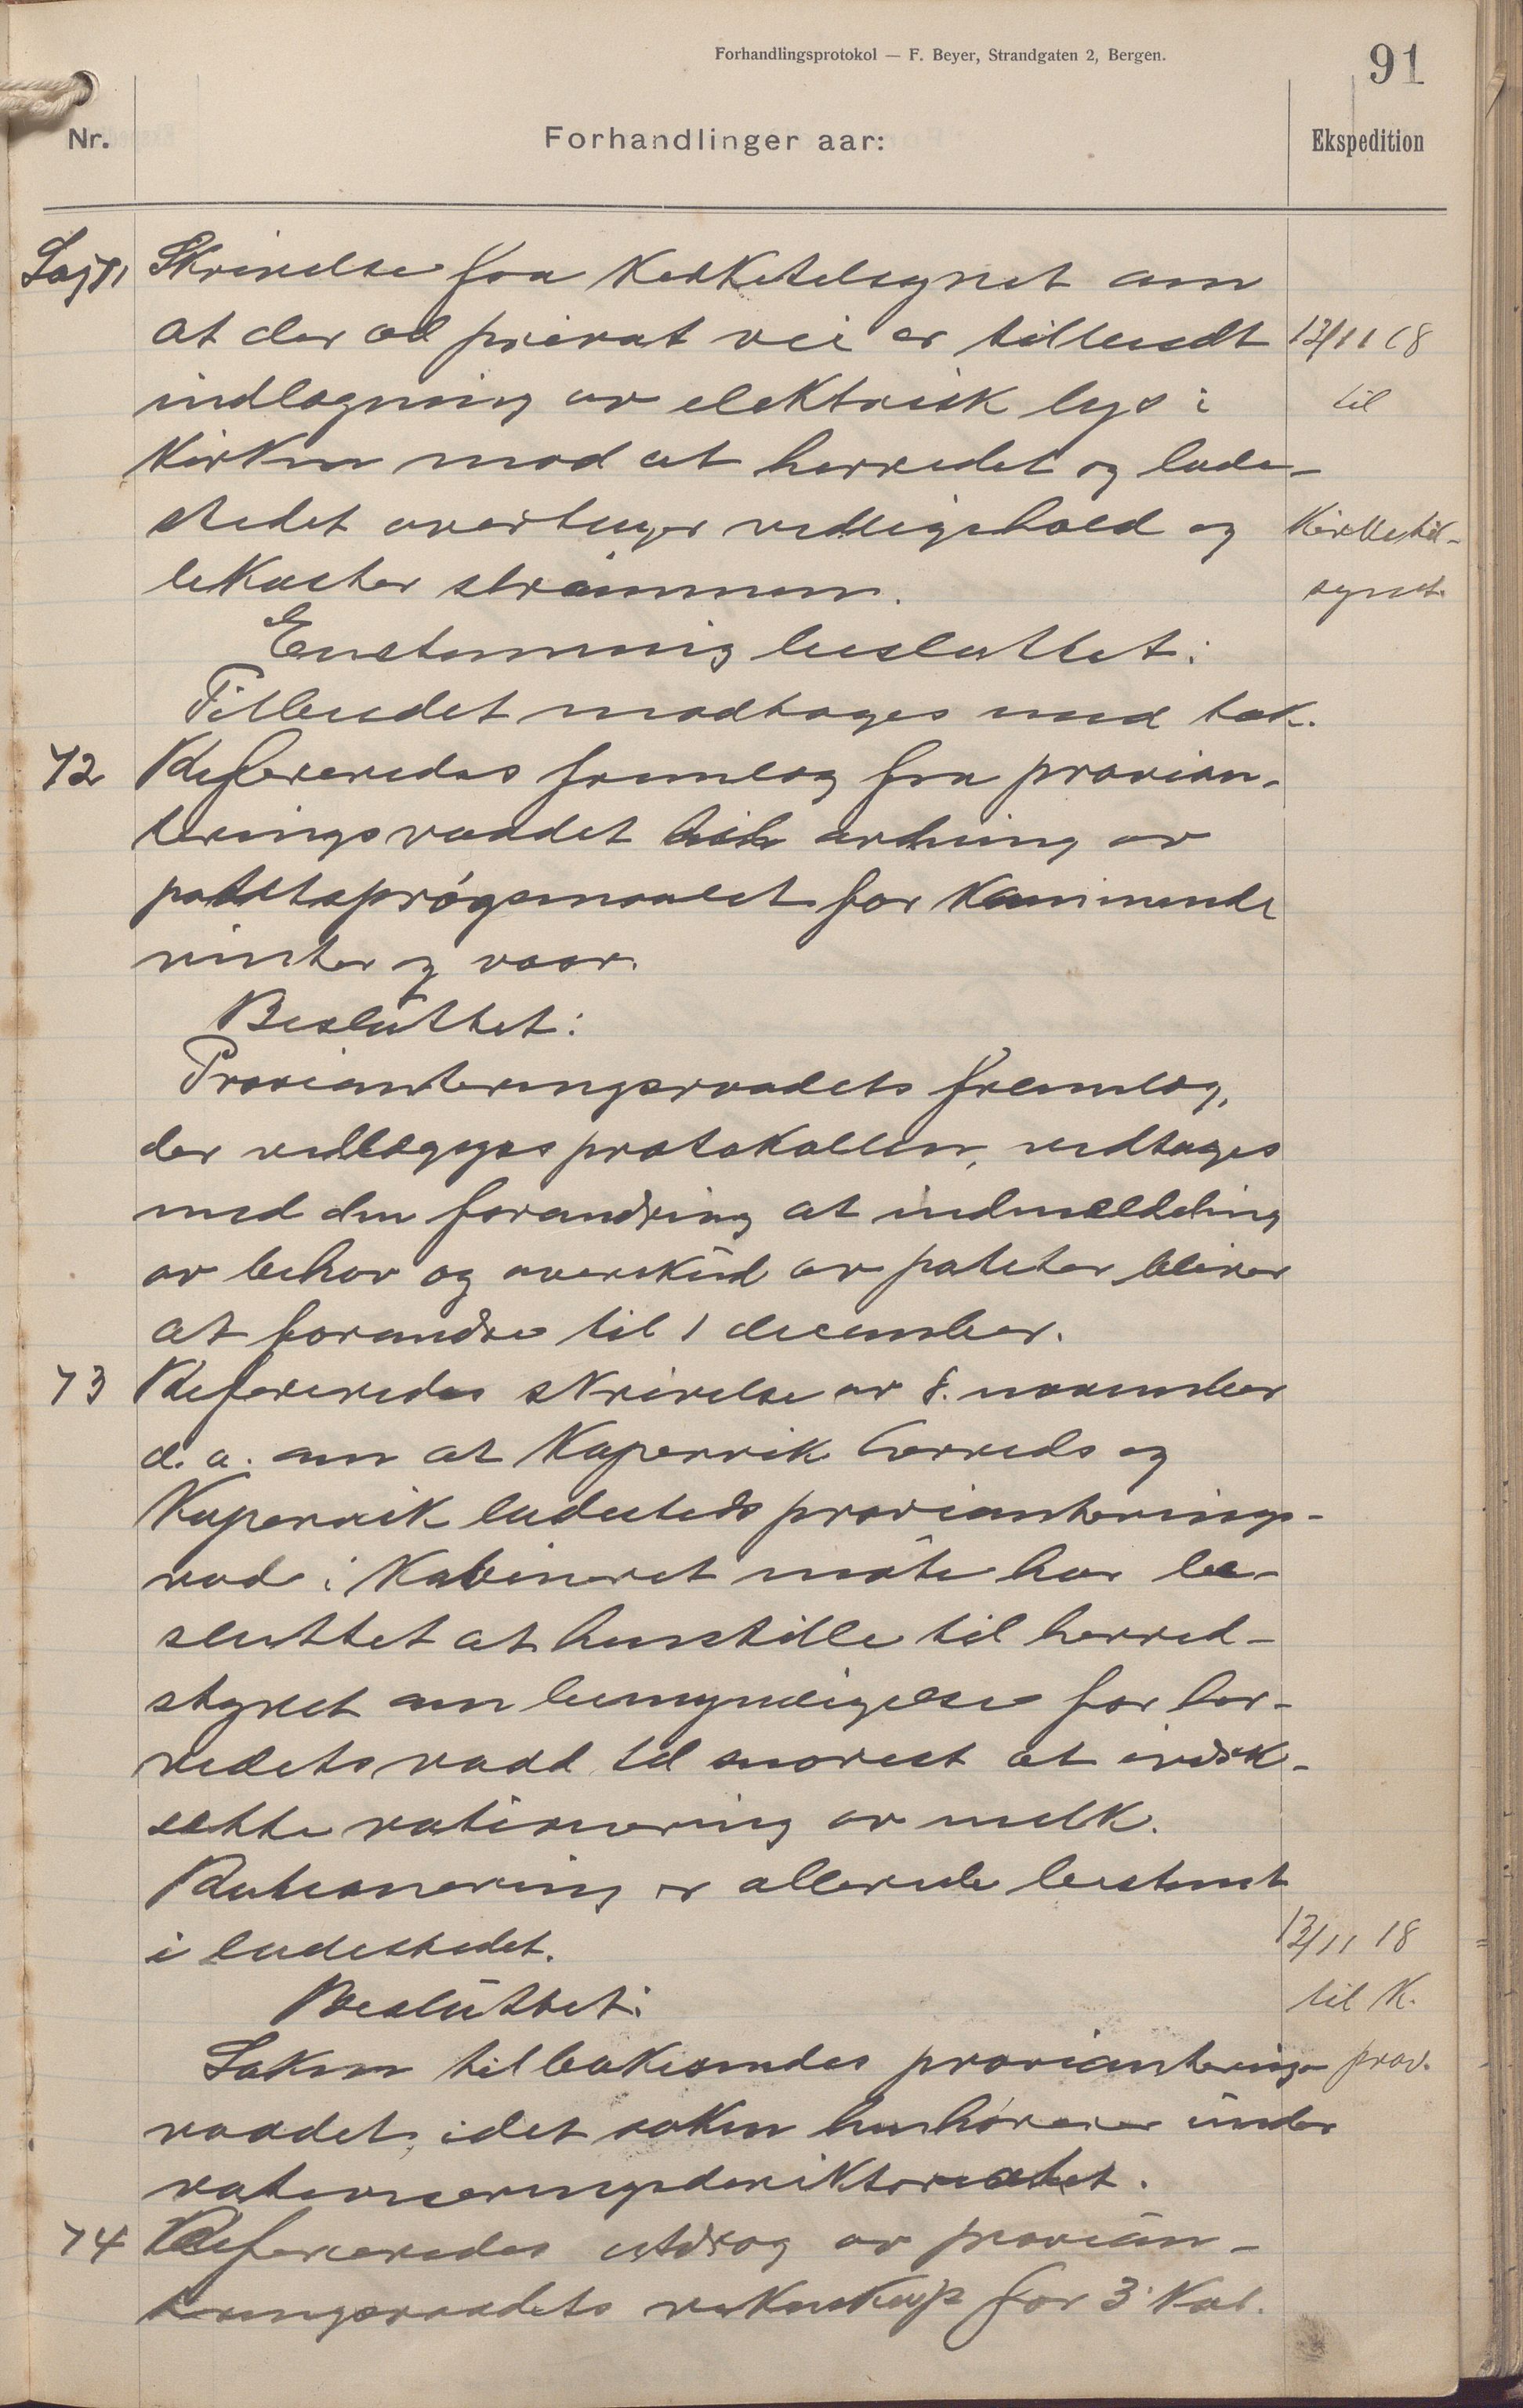 Forhandlingsprotokol — F. Beyer, Strandgaten 2, Bergen.
91
Nr.
Forhandlinger aar:
Ekspedition
Sag 71
Skrivelse fra Kirketilsynet om
at der ad privat vei er tilbudt
13/11 18
indlægning av elektrisk lys i
til
kirken mod at herredet og lade-
stedet overtager vedligehold og
Kirketil-
bekoster strømmen.
synet.
Enstemmig besluttet:
Tilbudet modtages med tak.
72
Refereredes fremlæg fra provian-
teringsraadet til ordning av
potetspørgsmaalet for kommende
vinter og vaar.
Besluttet:
Provianteringsraadets fremlæg,
der vedlægges protokollen, vedtages
med den forandring at indmeldelse
av behov og overskud av poteter bliver
at forandre til 1 december.
73
Refereredes skrivelse av 8. november
d. a. om at Kopervik herreds og
Kopervik ladesteds provianterings-
raad i kobineret møte har be-
sluttet at henstille til herred-
styret om bemyndigelse for her-
redets raad til snarest at irdsk-
sette rationering av melk.
Rationering er allerede bestemt
i ladestedet.
13/11 18
Besluttet:
til K.
Saken tilbakesendes provianterings
prov.
raadet, idet saken henhører under
rationeringsdirektoratet.
74
Refereredes utdrag av provian-
teringsraadets regnskap for 3 Kvt.